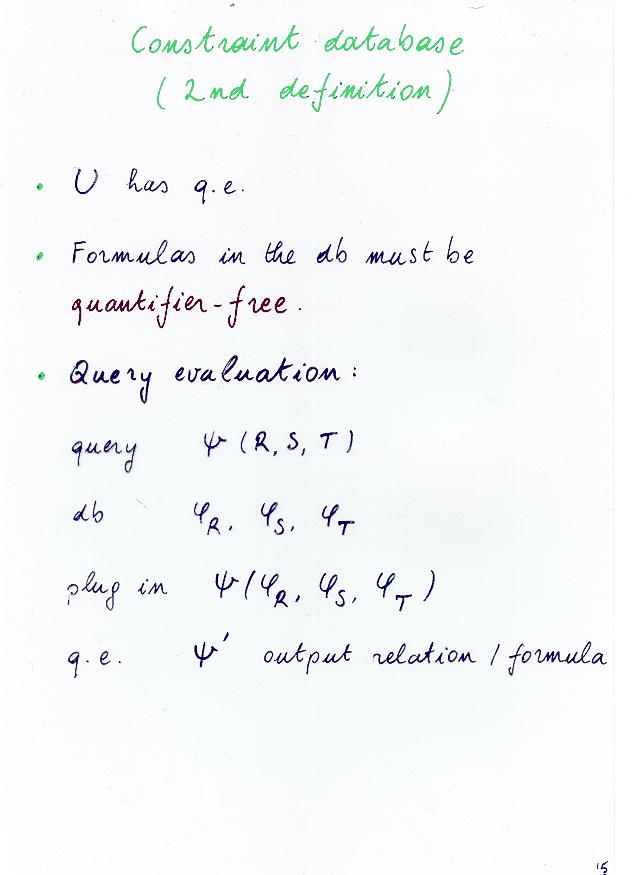 Constraint database
(2nd definition)
• U has q.e.
• Formulas in the db must be
quantifier-free.
• Query evaluation:
query ψ(R, S, T)
db φ_R, φ_S, φ_T
plug in ψ(φ_R, φ_S, φ_T)
q.e. ψ' output relation / formula
15